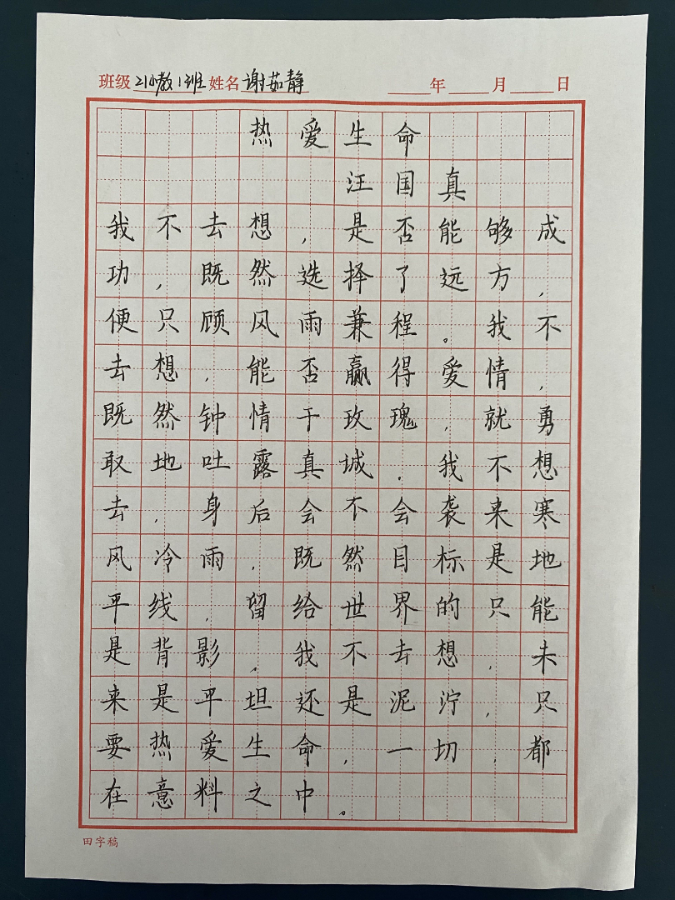 班级 21小教1班 姓名 谢茹静 年 月 日
热爱生命
汪国真
我不去想，是否能够成
功，既然选择了远方，
便只顾风雨兼程。我不
去想，能否赢得爱情，
既然钟情于玫瑰，就勇
敢地吐露真城，我不想
去，身后会不会袭来寒
风冷雨，既然目标是地
平线，留给世界的只能
是背影。我不去想，未
来是平坦还是泥泞，只
要热爱生命，一切，都
在意料之中。
田字稿